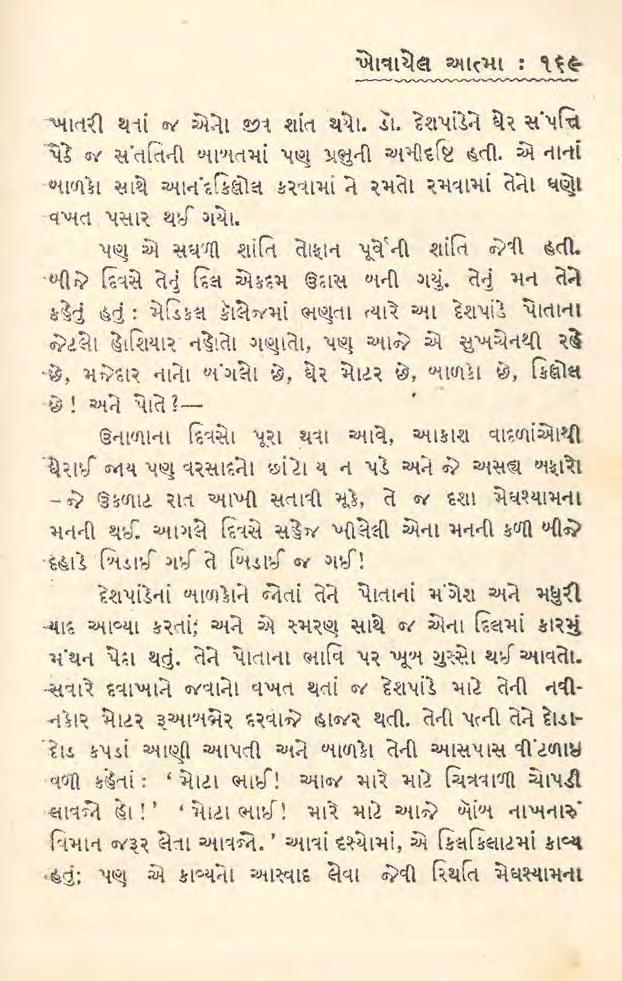 ખોવાયેલ આત્મા : ૧૬૯
ખાતરી થતાં જ એનો જીવ શાંત થયો. ડૉ. દેશપાંડેને ઘેર સંપત્તિ
પેઠે જ સંતતિની બાબતમાં પણ પ્રભુની અમીદૃષ્ટિ હતી. એ નાનાં
બાળકો સાથે આનંદકિલ્લોલ કરવામાં ને રમતો રમવામાં તેનો ઘણો
વખત પસાર થઈ ગયો.
પણ એ સઘળી શાંતિ તોફાન પૂર્વેની શાંતિ જેવી હતી.
બીજે દિવસે તેનું દિલ એકદમ ઉદાસ બની ગયું. તેનું મન તેને
કહેતું હતું : મેડિકલ કૉલેજમાં ભણતા ત્યારે આ દેશપાંડે પોતાના
જેટલો હોશિયાર નહોતો ગણાતો, પણ આજે એ સુખચેનથી રહે
છે, મજેદાર નાનો બંગલો છે, ઘેર મોટર છે, બાળકો છે, કિલ્લોલ
છે ! અને પોતે ?—
ઉનાળાના દિવસો પૂરા થવા આવે, આકાશ વાદળાંઓથી
ઘેરાઈ જાય પણ વરસાદનો છાંટો ય ન પડે અને જે અસહ્ય બફારો
– જે ઉકળાટ રાત આખી સતાવી મૂકે, તે જ દશા મેઘશ્યામના
મનની થઈ. આગલે દિવસે સહેજ ખીલેલી એના મનની કળી બીજે
દહાડે બિડાઈ ગઈ તે બિડાઈ જ ગઈ!
દેશપાંડેનાં બાળકોને જોતાં તેને પોતાનાં મંગેશ અને મધુરી
યાદ આવ્યા કરતાં; અને એ સ્મરણ સાથે જ એના દિલમાં કારમું
મંથન પેદા થતું. તેને પોતાના ભાવિ પર ખૂબ ગુસ્સો થઈ આવતો.
સવારે દવાખાને જવાનો વખત થતાં જ દેશપાંડે માટે તેની નવી-
નકોર મોટર રૂઆબભેર દરવાજે હાજર થતી. તેની પત્ની તેને દોડા-
દોડ કપડાં આણી આપતી અને બાળકો તેની આસપાસ વીંટળાઇ
વળી કહેતાં : ‘ મોટા ભાઈ! આજ મારે માટે ચિત્રવાળી ચોપડી
લાવજો હો!’ ‘ મોટા ભાઈ! મારે માટે આજે બૉંબ નાખનારું
વિમાન જરૂર લેતા આવજો. ’ આવાં દશ્યોમાં, એ કિલકિલાટમાં કાવ્ય
હતું; પણ એ કાવ્યનો આસ્વાદ લેવા જેવી સ્થિતિ મેઘશ્યામના